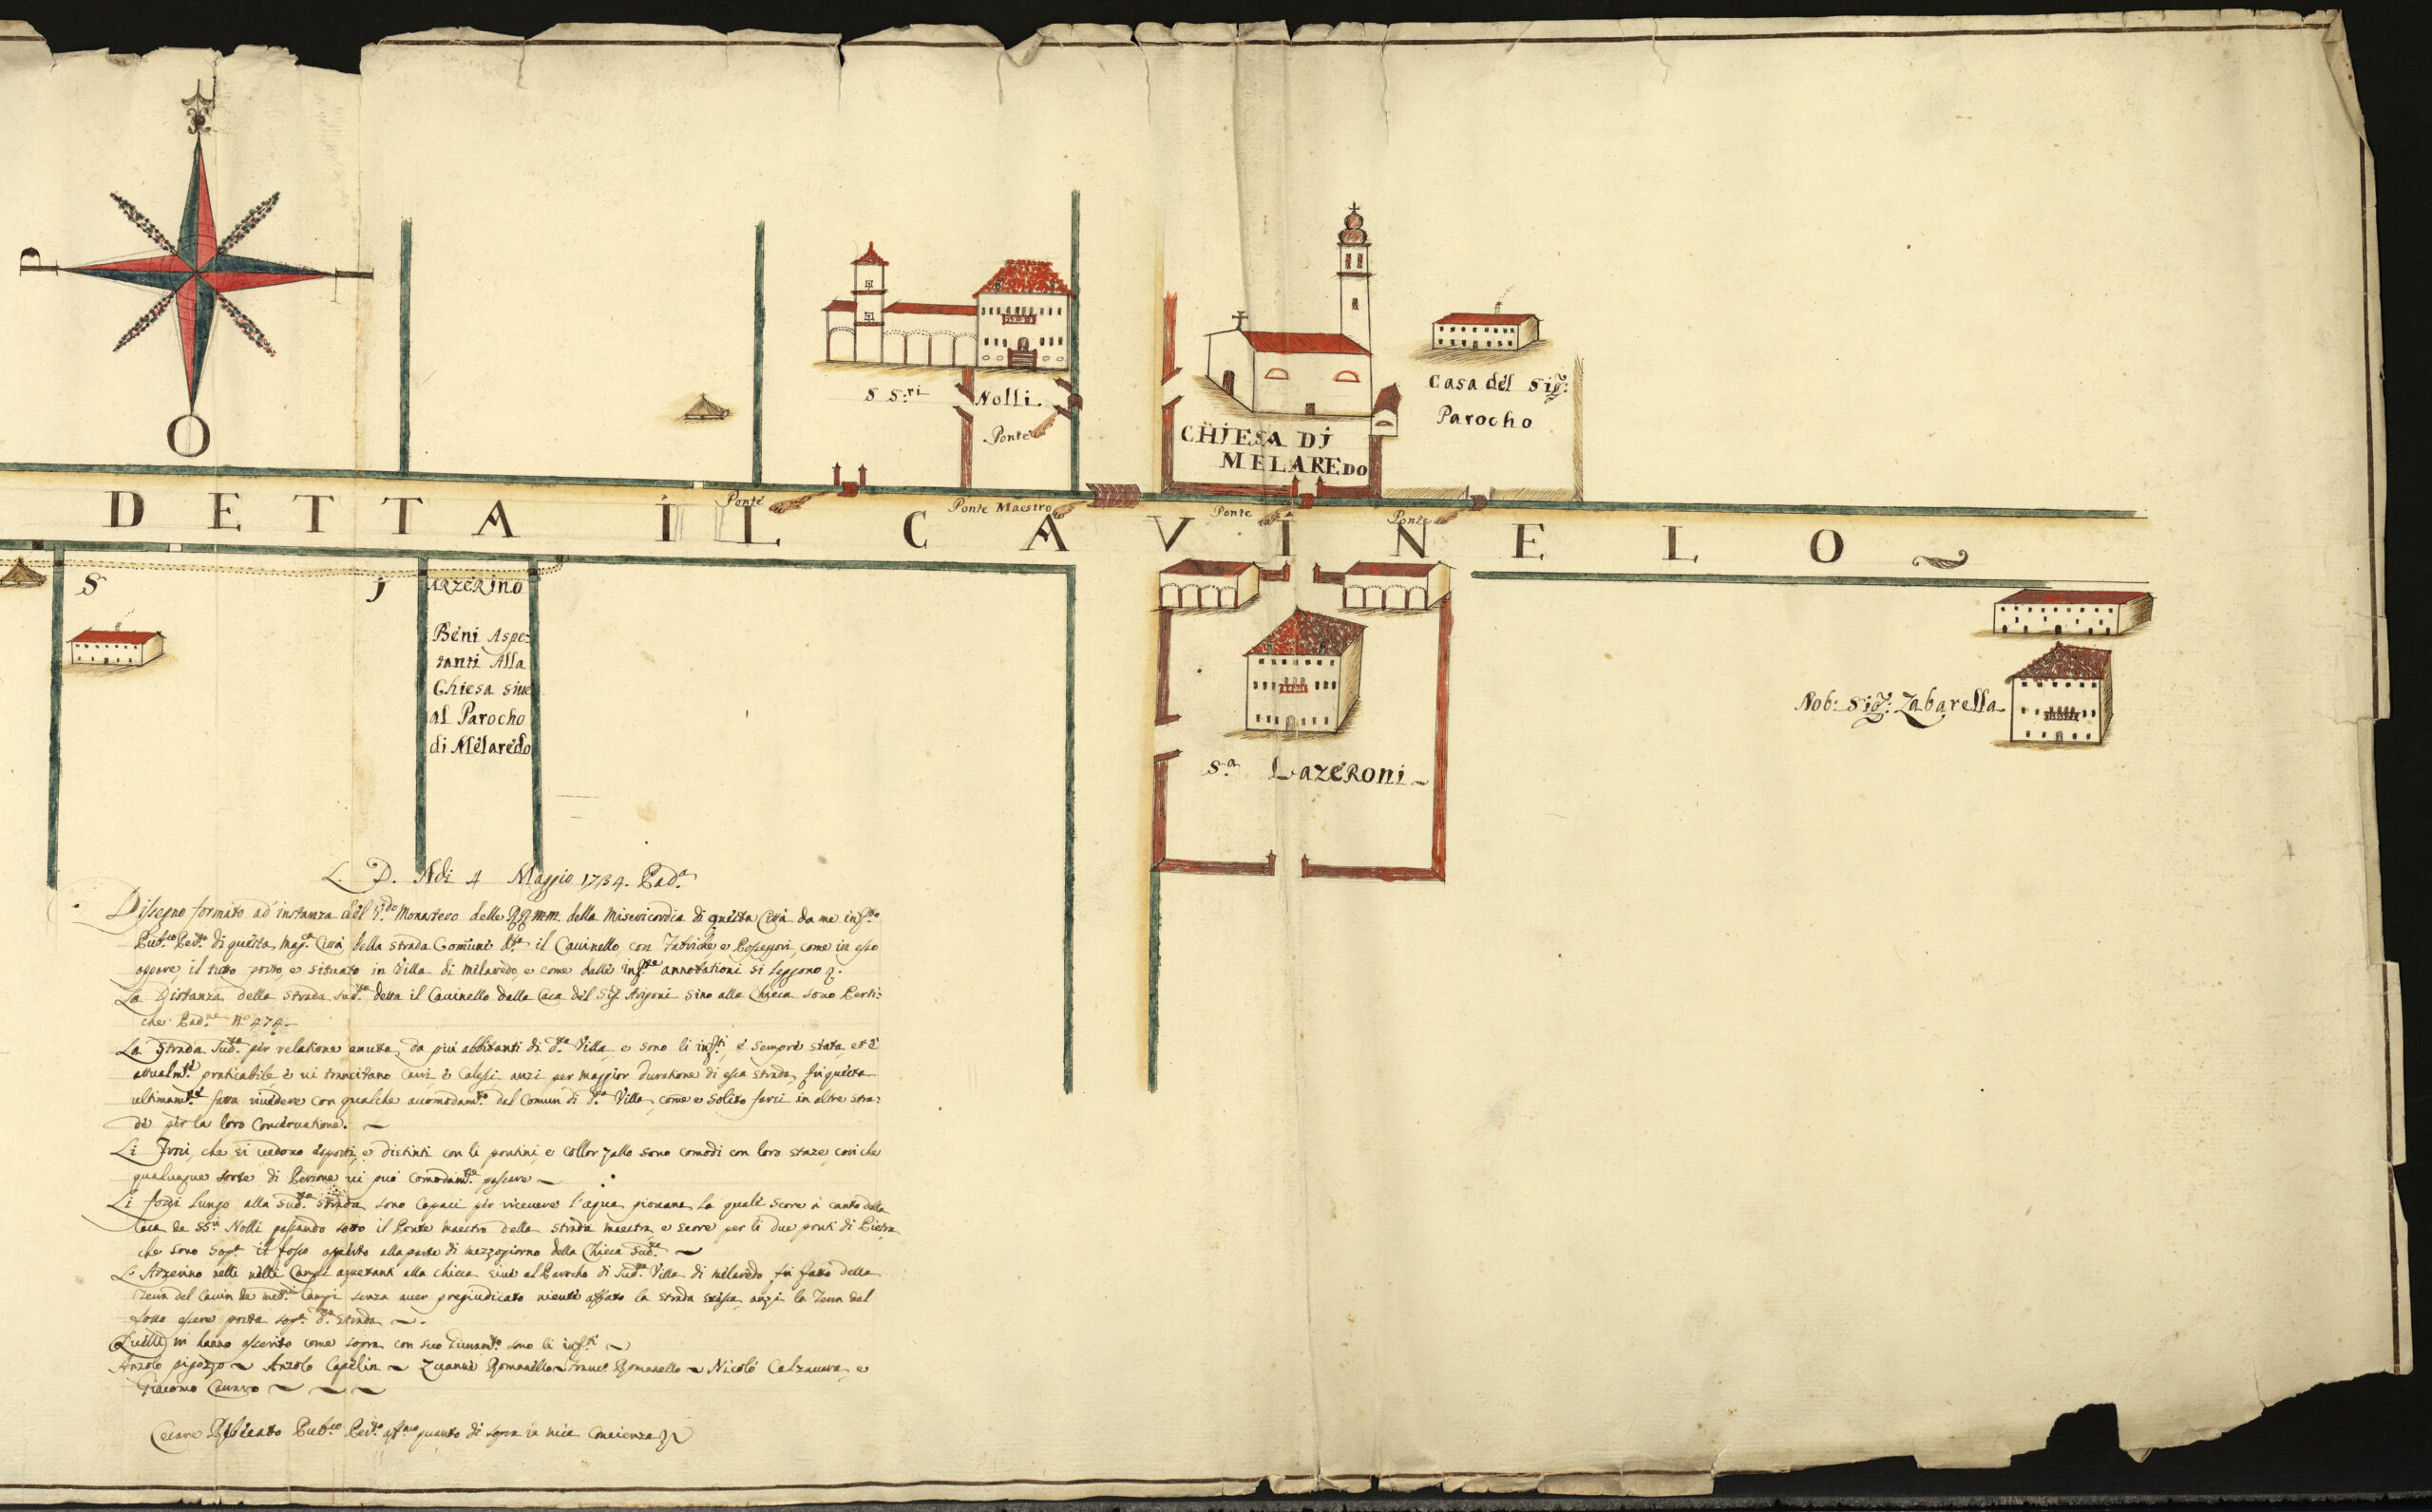 P
O
S S:ri Nolli.
Ponte
CHIESA DI
MELAREDO
Casa del Sig:
Parocho
Ponte
Ponte Maestro
Ponte
Ponte
DETTA IL CAVINELO
S
I
ARZERINO
Beni Aspe:
tanti Alla
Chiesa sive
al Parocho
di Melaredo
S.a Lazeroni
Nob: Sig: Zabarella
L. D. Adi 4 Maggio 1734. Pad.a
Disegno formato ad instanza del V.do Monastero delle RR. MM. della Misericordia di questa Città da me inf.to
Pub.co Per.to di questa mag.ca Città della strada Comune d.ta il Cavinello con Fabriche e Possessori, come in esso
appare il tutto posto, e situato in Villa di Melaredo, e come dalle inf.te annotationi si leggono
La Distanza della strada sud.ta detta il Cavinello dalla Casa del Sig. Arigoni sino alla Chiesa sono Perti:
che Pad.ne N.o 474.
La Strada sud.ta per relatione avuta da più abbitanti di d.ta Villa e sono li inf.ti, è sempre stata, et è
attualm.te praticabile, e vi transitano Carri, e Calessi, anzi per maggior duratione di essa strada, fu questa
ultimam.te fatta rivedere con qualche accomodam.to dal Comun di d.ta Villa, come e solito farsi in altre stra:
de per la loro Conservatione.
Li che si vedono esposti, e distinti con li pontini, e collor zallo sono comodi con loro staze, cosi che
qualunque sorte di Persone vi può comodam.te passare
Li fossi lungo alla sud.ta strada sono capaci per ricevere l'aqua piovana la quale score à canto della
Casa de SS.ri Nolli passando sotto il Ponte maestro della strada maestra, e scorre per li due ponti di Pietra
che sono sop.a il fosso aperto alla parte di mezzogiorno della Chiesa sud.ta
L'Arzerino nelli Campi aspetanti alla chiesa sive al Parocho di sud.ta Villa di Melaredo fu fatto della
Terra del Cavin de med.mi Campi senza aver pregiudicato niente affatto la strada stessa, anzi la Terra del
fosso essere posta sop.a d.ta strada
Quelli mi hanno asserito come sopra con suo Giuram.to sono li inf.ti
Anzolo Pigozzo Anzolo Capelin Zuanne Romanello Franc.o Romanello Nicolò Calzavara, e
Giacomo
Cesare Pub.co Per.to aff.mo quanto di sopra in mia Conscienza